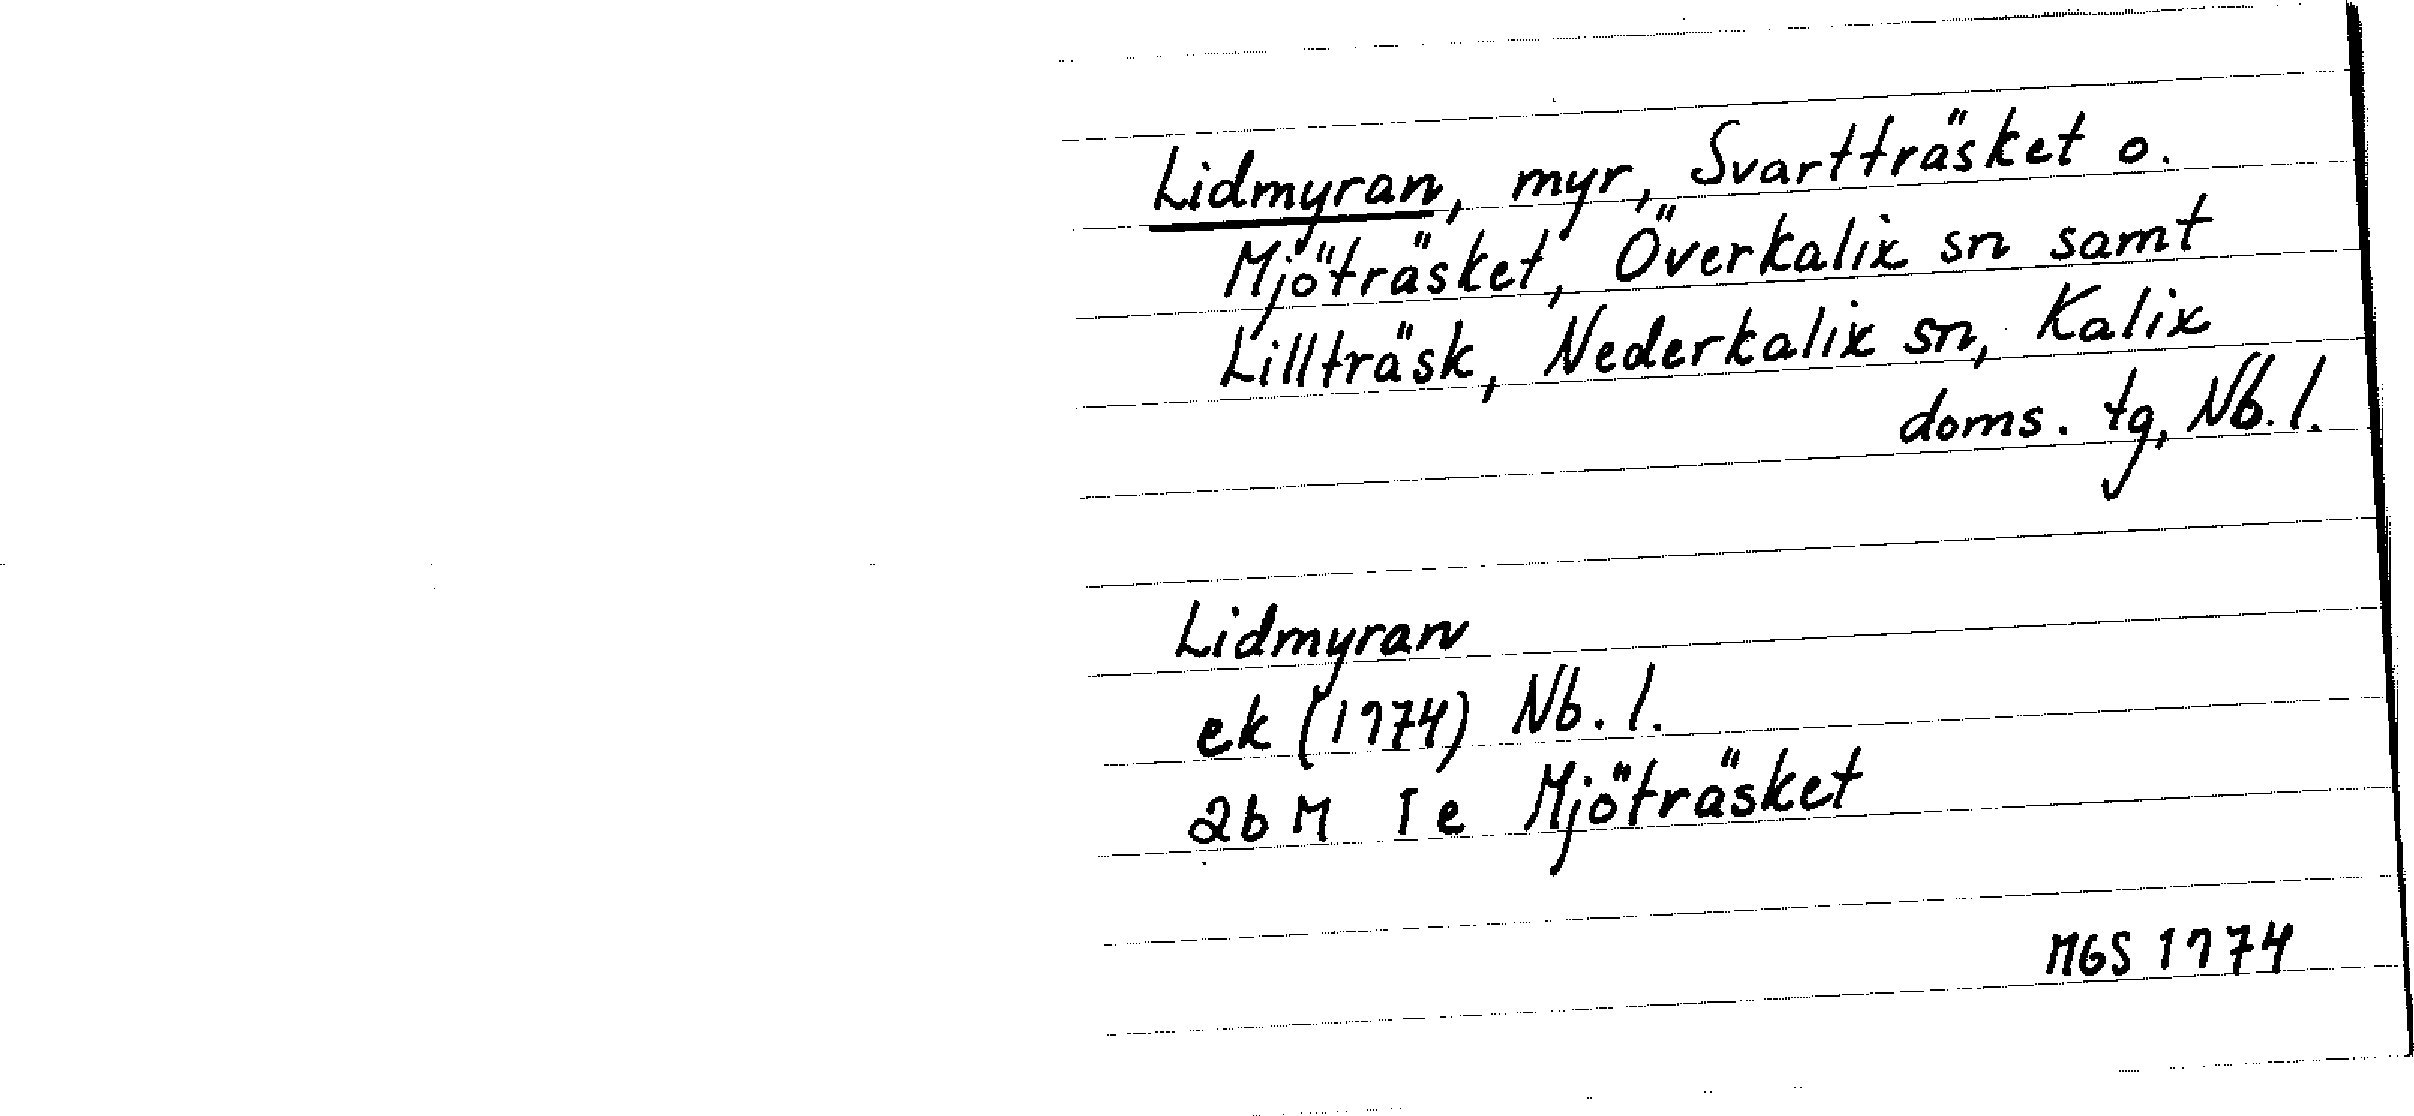 Lidmyran, myr, Svartträsket o.
Mjöträsket, Överkalix sn samt
Lillträsk, Nederkalix sn, Kalix
doms. tg, Nb. l.
Lidmyran
ek (1974) Nb. l.
26 M I e Mjöträsket
MGS 1974